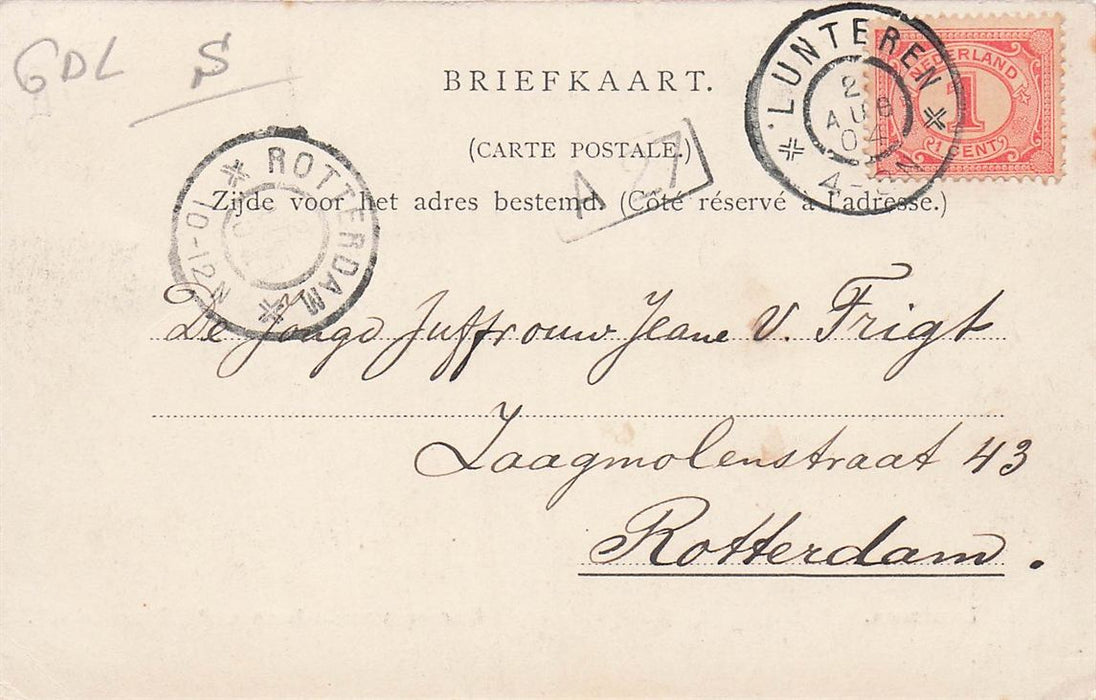 GDL S
BRIEFKAART.
(CARTE POSTALE.)
Zijde voor het adres bestemd. (Côté réservé à l'adresse.)
A 27
LUNTEREN
2
AUG
04
NEDERLAND
1
1 CENT
ROTTERDAM
10-12N
De Jonge Juffrouw Jeane v. Frigt
Zaagmolenstraat 43
Rotterdam.